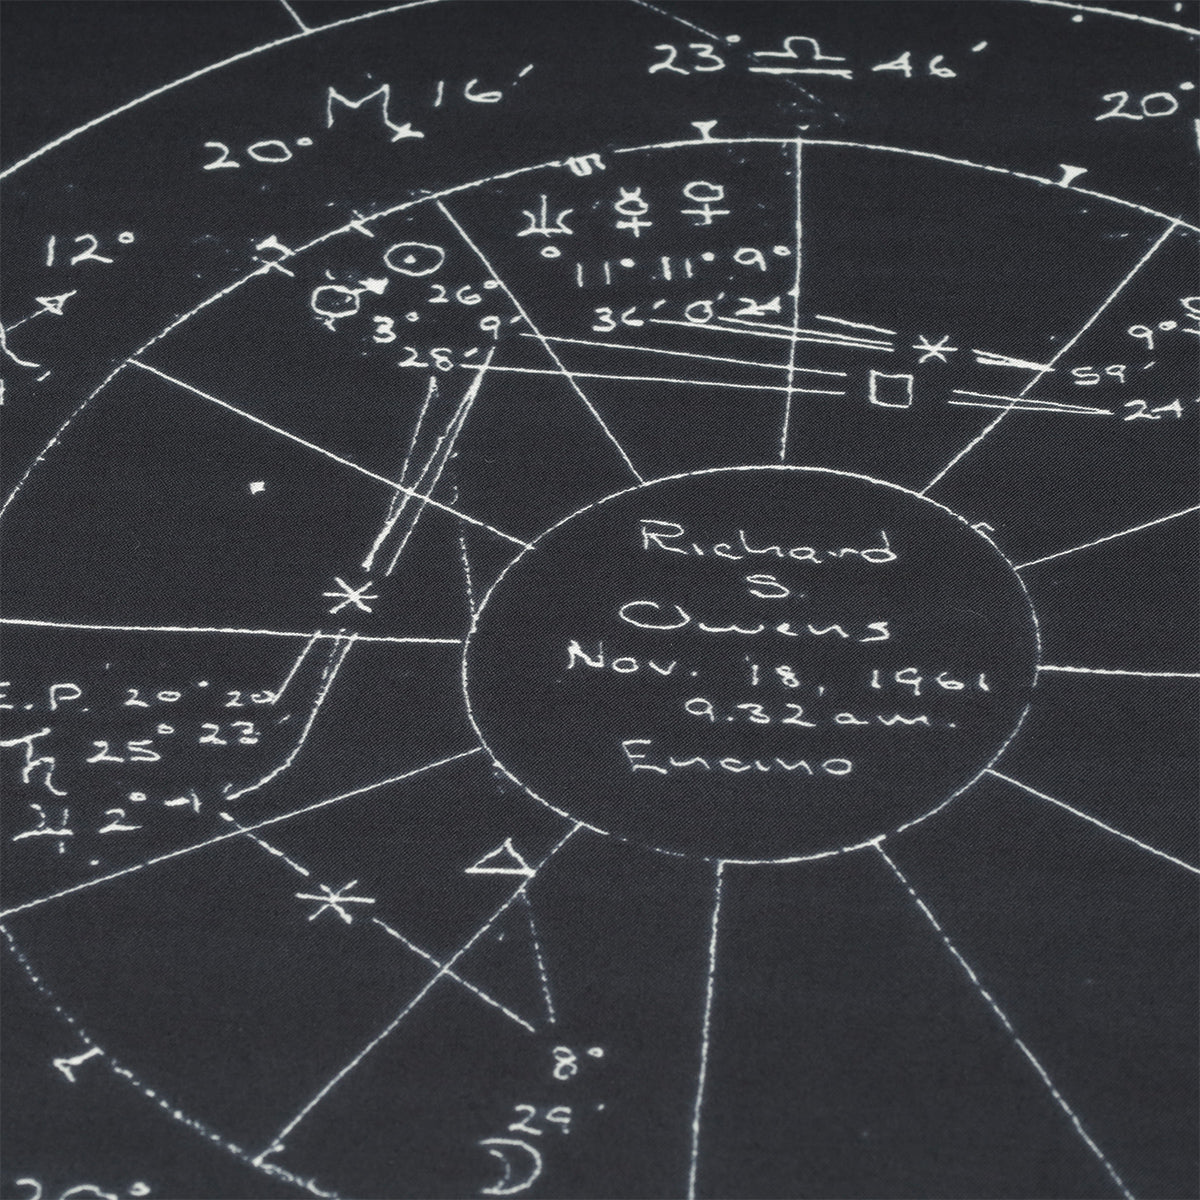 23° ♎ 46′
20° ♏ 16′
20°
12°
♆ ☿ ♀
11° 11° 9°
36′ 0′ 24′
☉
♂ 26°
3° 9′
28′
9°
59′
24
Richard
S.
Owens
Nov. 18, 1961
9.32 a.m.
Encino
E.P. 20° 20
♄ 25° 23′
♃ 2°
8°
29′
☽